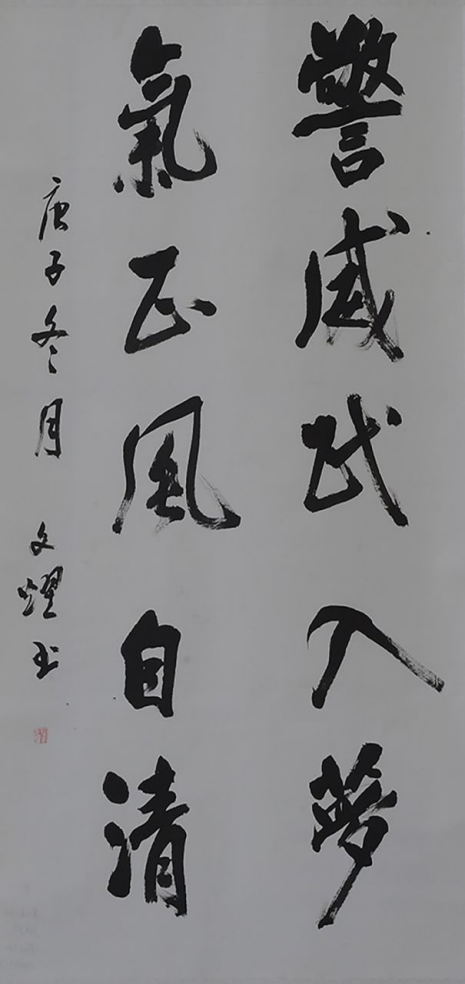 警威武入夢
氣正風自清
庚子冬月 文燿书